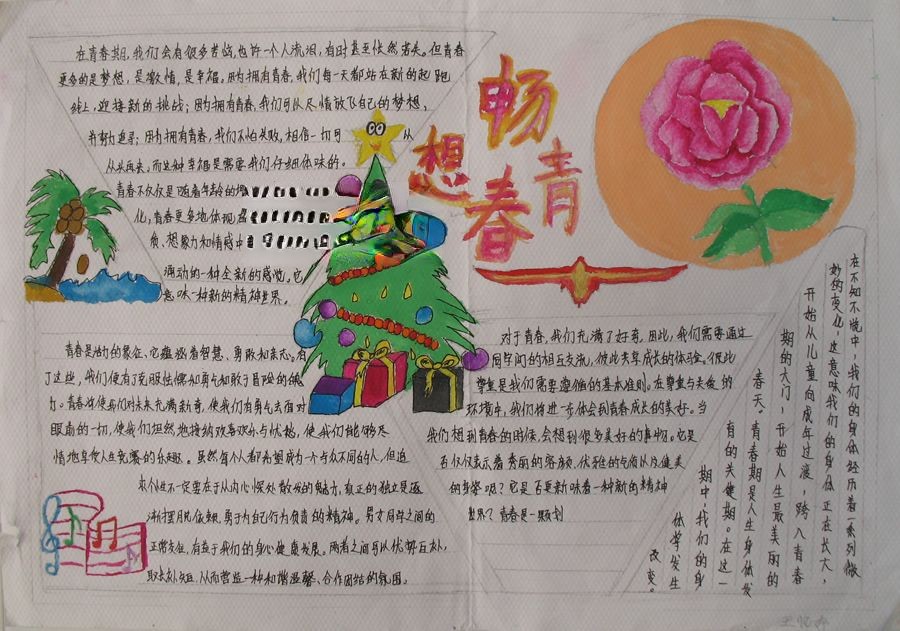 在青春期,我们会有很多苦恼,也许一个人流泪,有时甚至怅然若失。但青春
更多的是梦想,是激情,是幸福,因为拥有青春,我们每一天都站在新的起跑
线上,迎接新的挑战;因为拥有青春,我们可以尽情放飞自己的梦想、
并努力追寻;因为拥有青春,我们不怕失败,相信一切可 从
从头再来。而这种幸福是需要我们仔细体味的。
青春不仅仅是随着年龄的
化,青春更多地体现
质、想象力和情感中
涌动的一种全新的感觉。它
意味一种新的精神世界。
畅
想
青
春
青春是活力的象征,它蕴涵着智慧、勇敢和
了这些,我们便有了克服怯懦的勇气和敢于冒险的
力。青春将使我们对未来充满新奇,使我们有勇气去面对
眼前的一切,使我们坦然地接纳欢喜欢乐与忧愁,使我们能够尽
情地享受人生竞赛的乐趣。虽然每个人都希望成为一个与众不同的人,但追
求个性不一定要在于从内心深处散发的魅力,真正的独立是逐
渐摆脱依赖、勇于为自己行为负责的精神。男女同学之间的
正常交往,有益于我们的身心健康发展。两者之间可以优势互补,
取长补短,从而营造一种和谐温馨、合作团结的氛围。
对于青春,我们充满了好奇。因此,我们需要通过
同学间的相互交流,彼此共享成长的体验。彼此
尊重是我们需要遵循的基本准则。在尊重与关爱的
环境中,我们将进一步体会到青春成长的美好。当
我们想到青春的时候,会想到很多美好的事物。它是
否仅仅表示着秀丽的容颜,优雅的气质以及健美
的身姿呢?它是否更新味着一种新的精神
世界?青春是一颗划
在不知不觉中,我们的身体经历着一系列微
妙的变化,这意味我们的身体正在长大,
开始从儿童向成年过渡,跨入青春
期的大门,开始人生最美丽的
春天。青春期是人生身体发
育的关键期。在这一
期中,我们的身
体学发生
改变。